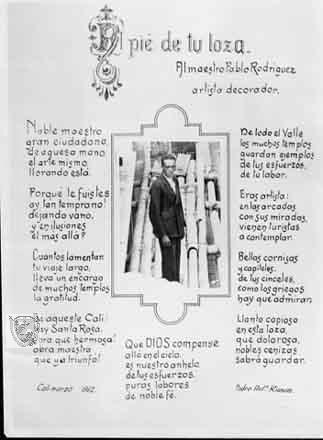 Al pié de tu loza.
Al maestro Pablo Rodriguez
artista decorador.
Noble maestro
gran ciudadano,
de aquesa mano
el arte mismo
llorando está.
Porqué te fuistes
ay tan temprano!
dejando vano,
y en ilusiones
el más allá?
Cuántos lamentan
tu viaje largo,
lleva un encargo
de muchos templos
la gratitud.
De aqueste Cali
hoy Santa Rosa,
obra que hermosa!
obra maestra
que ya triunfó!
Cali-marzo
Que DIOS compense
allé en el cielo
es nuestro anhelo
de tus esfuerzos
puras labores
de noble fé.
De todo el Valle
los muchos templos
guardan ejemplos
de tus esfuerzos,
de tu labor.
Eras artista:
en las arcadas
con sus miradas,
vienen turistas
a contemplar.
Bellas cornisas
y capiteles,
de tus cinceles,
como los griegos
hay que admirar.
Llanto copioso
en esta loza,
que dolorosa,
nobles cenizas
sabrá guardar.
Pedro